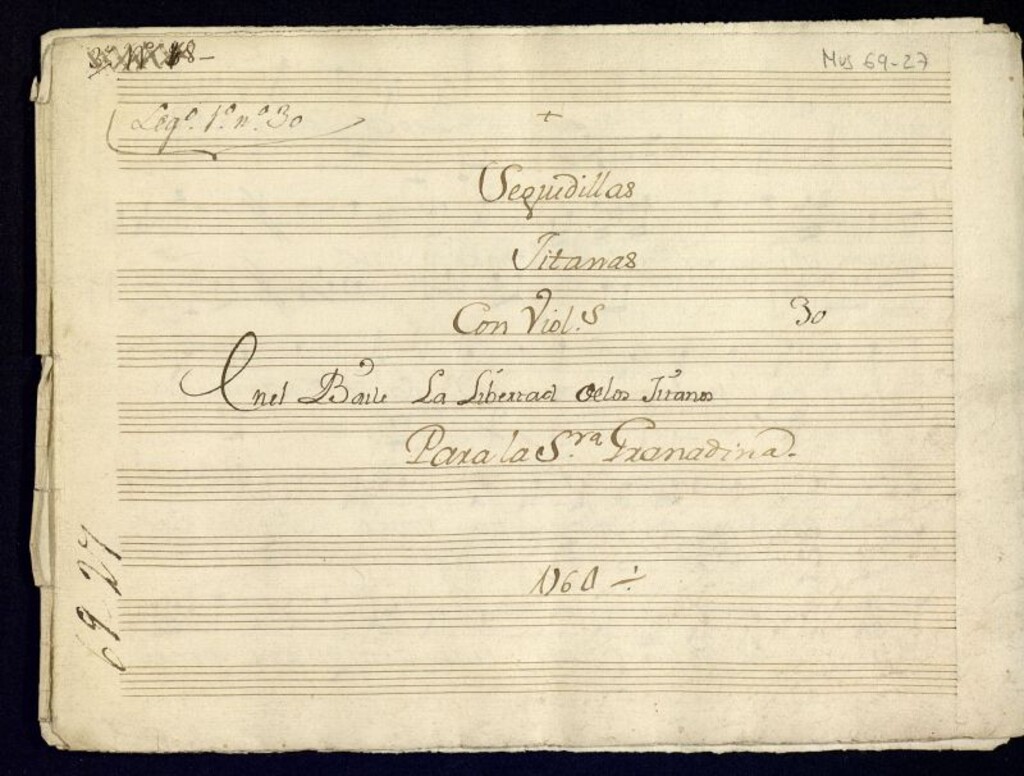 Mus 69-27
Leg.º 1.º n.º 30
+
Seguidillas
Jitanas
Con Viol.s
30
Enel Baile La Libertad delos Jitanos
Para la S.ra Granadina.
69-27